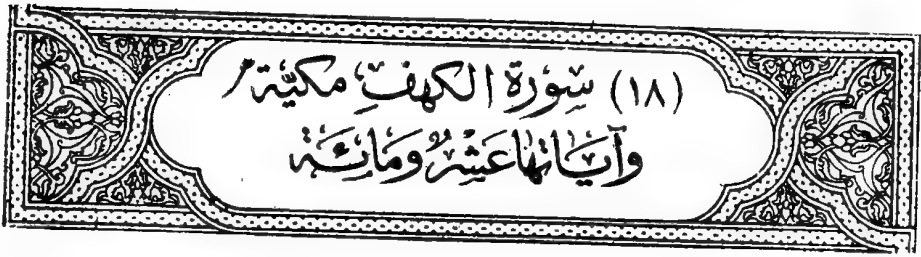 (١٨) سِوُرَةِ الكهفِ مكيّة
وَآيَاتها عَشْرٌ وَمَائِة